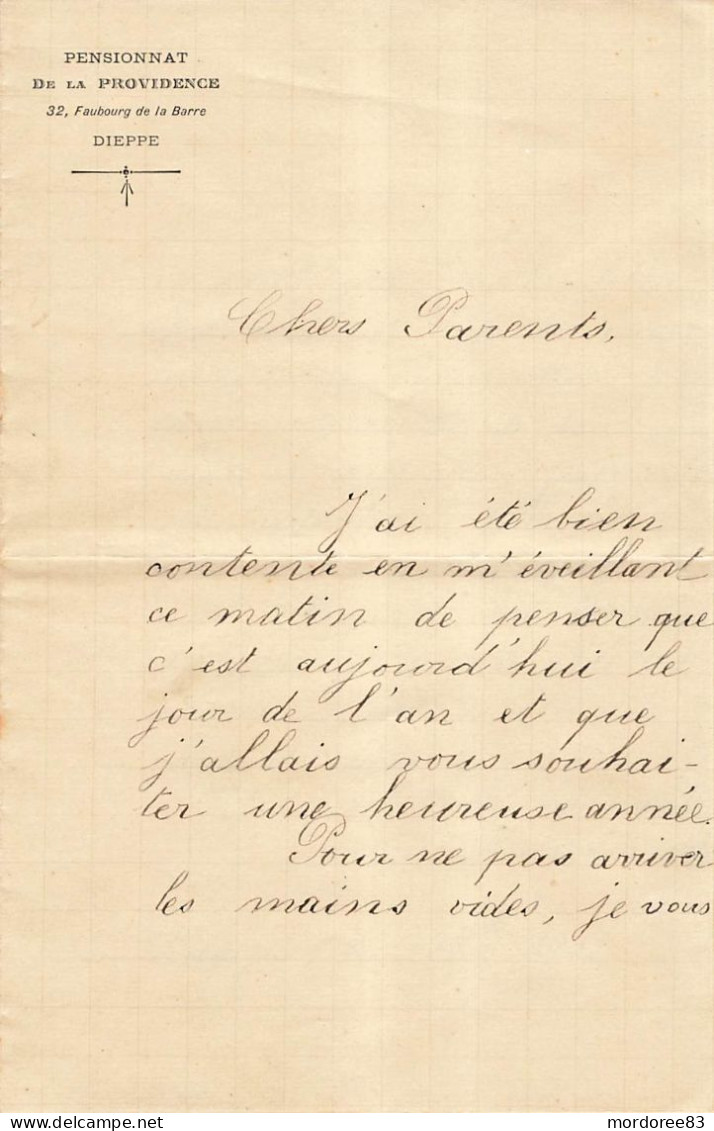 PENSIONNAT
DE LA PROVIDENCE
32, Faubourg de la Barre
DIEPPE
Chers Parents,
J'ai été bien
contente en m'éveillant
ce matin de penser que
c'est aujourd'hui le
jour de l'an et que
j'allais vous souhai-
ter une heureuse année.
Pour ne pas arriver
les mains vides, je vous
delcampe.net
mordoree83